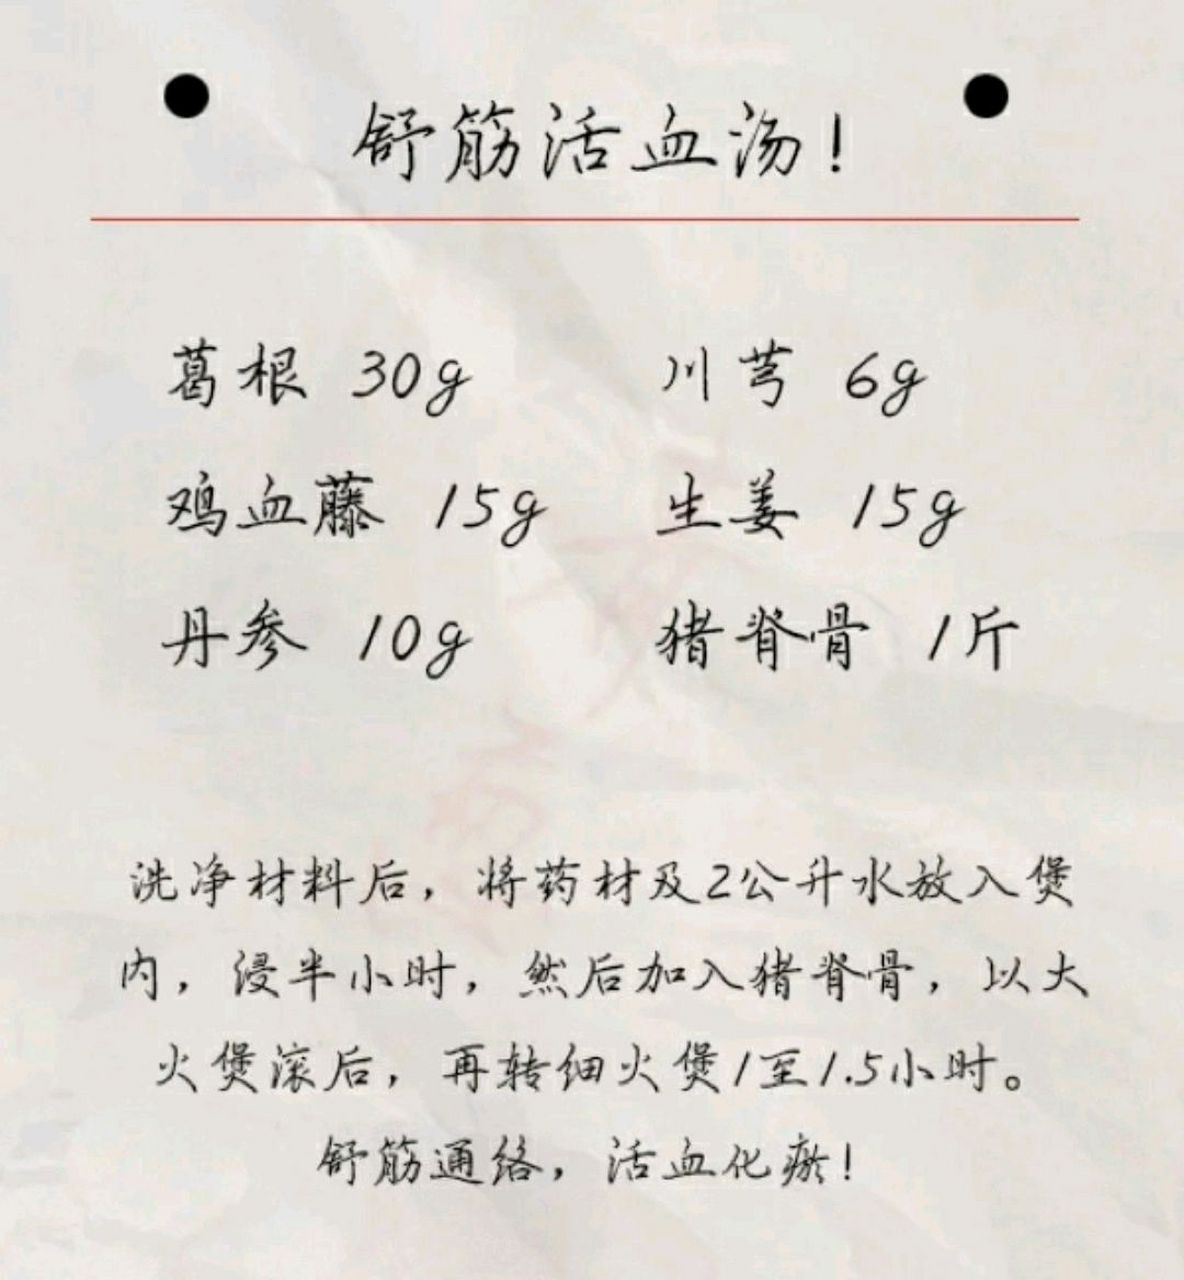 舒筋活血汤！
葛根 30g 川芎 6g
鸡血藤 15g 生姜 15g
丹参 10g 猪脊骨 1斤
洗净材料后，将药材及2公升水放入煲
内，浸半小时，然后加入猪脊骨，以大
火煲滚后，再转细火煲1至1.5小时。
舒筋通络，活血化瘀！